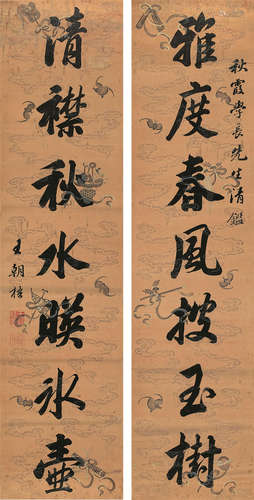 秋霞學長先生清鑑
雅度春風披玉樹
清襟秋水暎氷壺
王朝梧